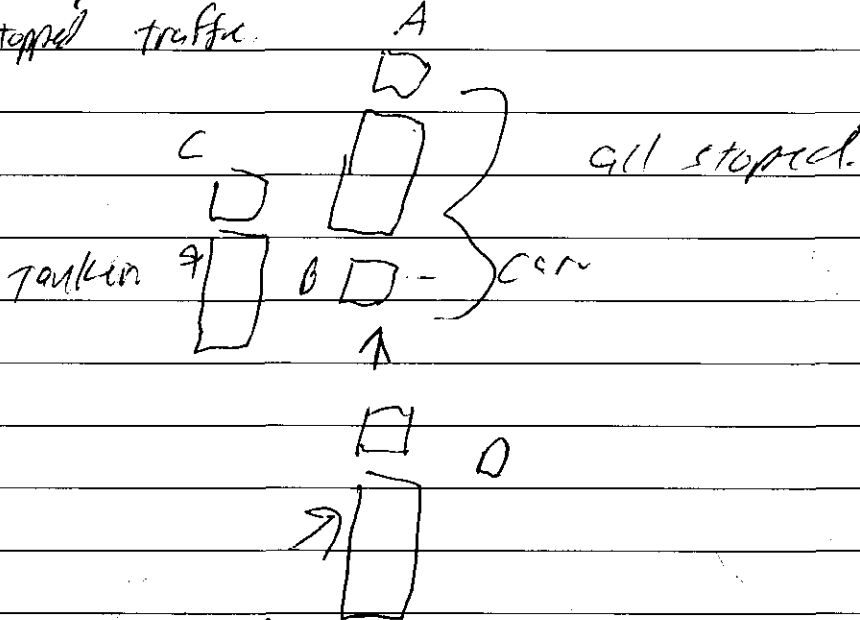 stopped traffic.
A
all stoped.
C
Tanker
B
Car
D